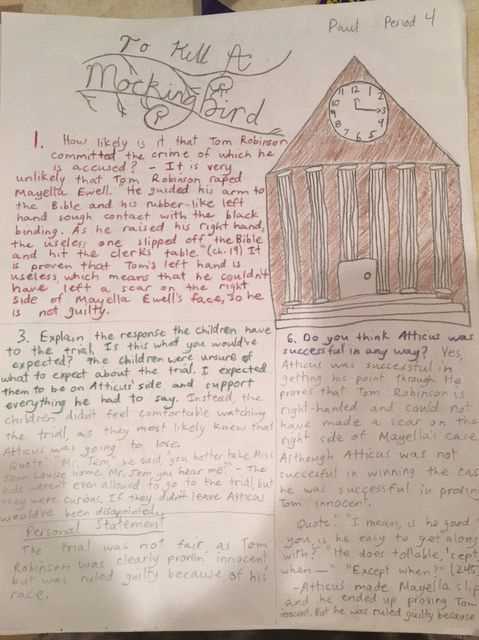 Paul Period 4
To Kill A
Mockingbird
11 12 1
10 2
9 3
8 4
7 6 5
1. How likely is it that Tom Robinson
committed the crime of which he
is accused? - It is very
unlikely that Tom Robinson raped
Mayella Ewell. "He guided his arm to
the Bible and his rubber-like left
hand sough contact with the black
binding. As he raised his right hand,
the useless one slipped off the Bible
and hit the clerk's table." (ch. 19) It
is proven that Tom's left hand is
useless, which means that he couldn't
have left a scar on the right
side of Mayella Ewell's face, so he
is not guilty.
3. Explain the response the children have
to the trial. Is this what you would've
expected? The children were unsure of
what to expect about the trial. I expected
them to be on Atticus' side and support
everything he had to say. Instead, the
children didn't feel comfortable watching
the trial, as they most likely knew that
Atticus was going to lose.
Quote: "Mr. Jem," he said, "you better take Miss
Jean Louise home. Mr. Jem, you hear me?" - The
kids weren't even allowed to go to the trial, but
they were curious. If they didn't leave Atticus
would've been disappointed.
Personal Statement
The trial was not fair as Tom
Robinson was clearly proven innocent,
but was ruled guilty because of his
race.
6. Do you think Atticus was
successful in any way? Yes,
Atticus was successful in
getting his point through. He
proves that Tom Robinson is
right-handed and could not
have made a scar on the
right side of Mayella's case.
Although Atticus was not
succesful in winning the case
he was successful in proving
Tom innocent.
Quote: "I mean, is he good
you, is he easy to get along
with?" "He does tollable, 'cept
when—" "Except when?" (245)
- Atticus made Mayella slip
and he ended up proving Tom
innocent. But he was ruled guilty because